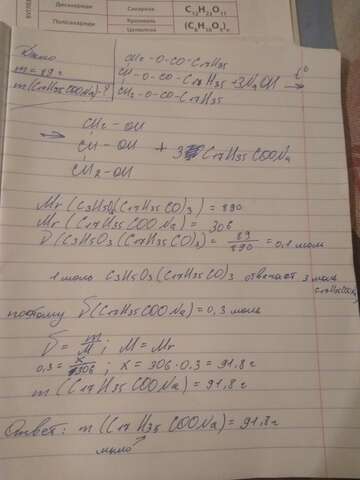 Дисахариди
Сахароза
C₁₂H₂₂O₁₁
Полісахариди
Крохмаль
Целюлоза
(C₆H₁₀O₅)n
Дано
m = 89 г
m(C17H35COONa)-?
CH2-O-CO-C17H35
CH-O-CO-C17H35 +3NaOH t°→
CH2-O-CO-C17H35
→ CH2-OH
CH-OH + 3C17H35COONa
CH2-OH
Mr(C3H5O3(C17H35CO)3) = 890
Mr(C17H35COONa) = 306
ν(C3H5O3(C17H35CO)3) = 89/890 = 0,1 моль
1 моль C3H5O3(C17H35CO)3 отвечает 3 моль
C17H35COONa
поэтому ν(C17H35COONa) = 0,3 моль
ν = m/M; M = Mr
0,3 = x/306; x = 306·0,3 = 91,8 г
m(C17H35COONa) = 91,8 г
Ответ: m(C17H35COONa) = 91,8 г
мыло